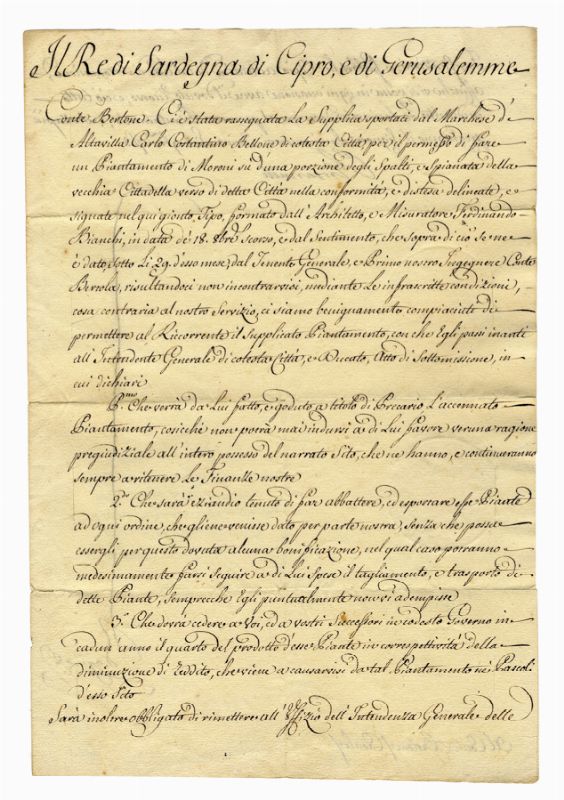 Il Re di Sardegna di Cipro, e di Gerusalemme
Conte Bertone. Ci è stata rassegnata la Supplica sportaci dal Marchese d'
Altavilla Carlo Costantino Bellone di cotesta Città per il permesso di fare
un Piantamento di Moroni su d'una porzione degli Spalti, e Spianata della
vecchia Cittadella verso di detta Città nella conformità, e distesa delineate, e
signate nel qui gionto Tipo, formato dall'Architetto, e Misuratore Ferdinando
Bianchi, in data de' 18. 8bre scorso, e dal Sentimento, che sopra di ciò se ne
è dato, sotto li 29. d'esso mese, dal Tenente Generale, e Primo nostro Ingegnere Conte
Bertola, risultandoci non incontrarvisi, mediante le infrascritte condizioni,
cosa contraria al nostro Servizio, ci siamo benignamente compiaciuti di
permettere al Ricorrente il supplicato Piantamento, con che Egli passi inanti
all'Intendente Generale di cotesta Città, e Ducato, Atto di Sottomissione, in
cui dichiari
P.mo Che verrà da Lui fatto, e goduto a titolo di Precario, l'accennato
Piantamento, cosicchè non potrà mai indursi a di Lui favore veruna ragione
pregiudiziale all'intero possesso del narrato Sito, che ne hanno, e continueranno
sempre a ritenere le Finanze nostre
2.° Che sarà eziandio tenuto di far abbattere, ed esportare esse Piante
ad ogni ordine, che gliene venisse dato per parte nostra, senza che possa
essergli per questo dovuta alcuna bonificazione, nel qual caso potranno
medesimamente farsi seguire a di Lui Spese il tagliamento, e trasporto di
dette Piante, semprecche Egli puntualmente non vi adempisse
3.° Che dovrà cedere a Voi, ed a vostri Successori in codesto Governo in
cadun'anno il quarto del prodotto d'esse Piante in correspettività della
diminuzione di reddito, che viene a causarsi da tal Piantamento ne' Pascoli
d'esso Sito
Sarà inoltre obbligato di rimettere all'Uffizio dell'Intendenza Generale delle